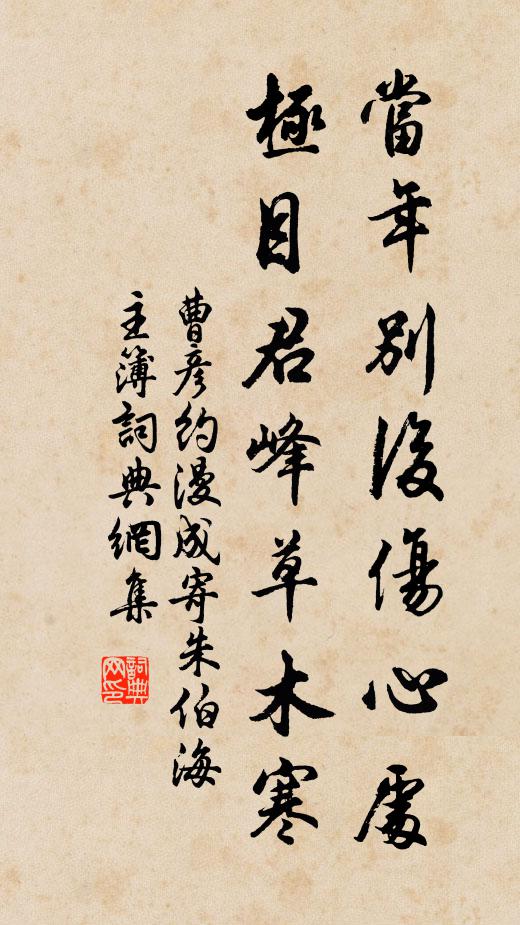 當年別後傷心處
極目君峰草木寒
曹彥約漫成寄朱伯海
主簿詞典網集
詞典網印